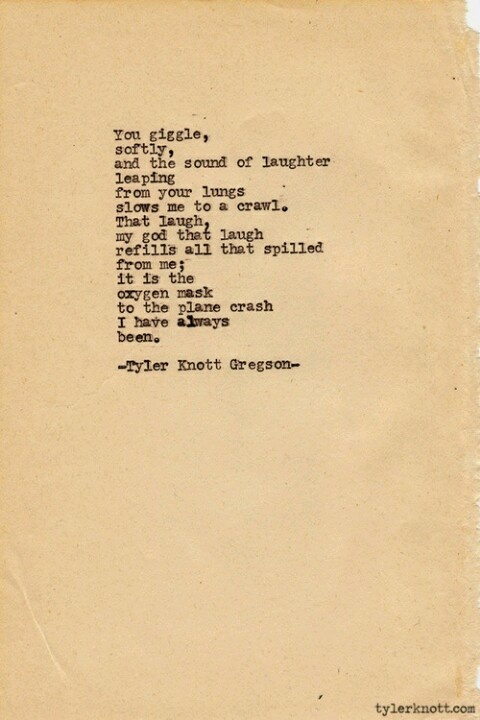 You giggle,
softly,
and the sound of laughter
leaping
from your lungs
slows me to a crawl.
That laugh,
my god that laugh
refills all that spilled
from me;
it is the
oxygen mask
to the plane crash
I have always
been.
-Tyler Knott Gregson-
tylerknott.com